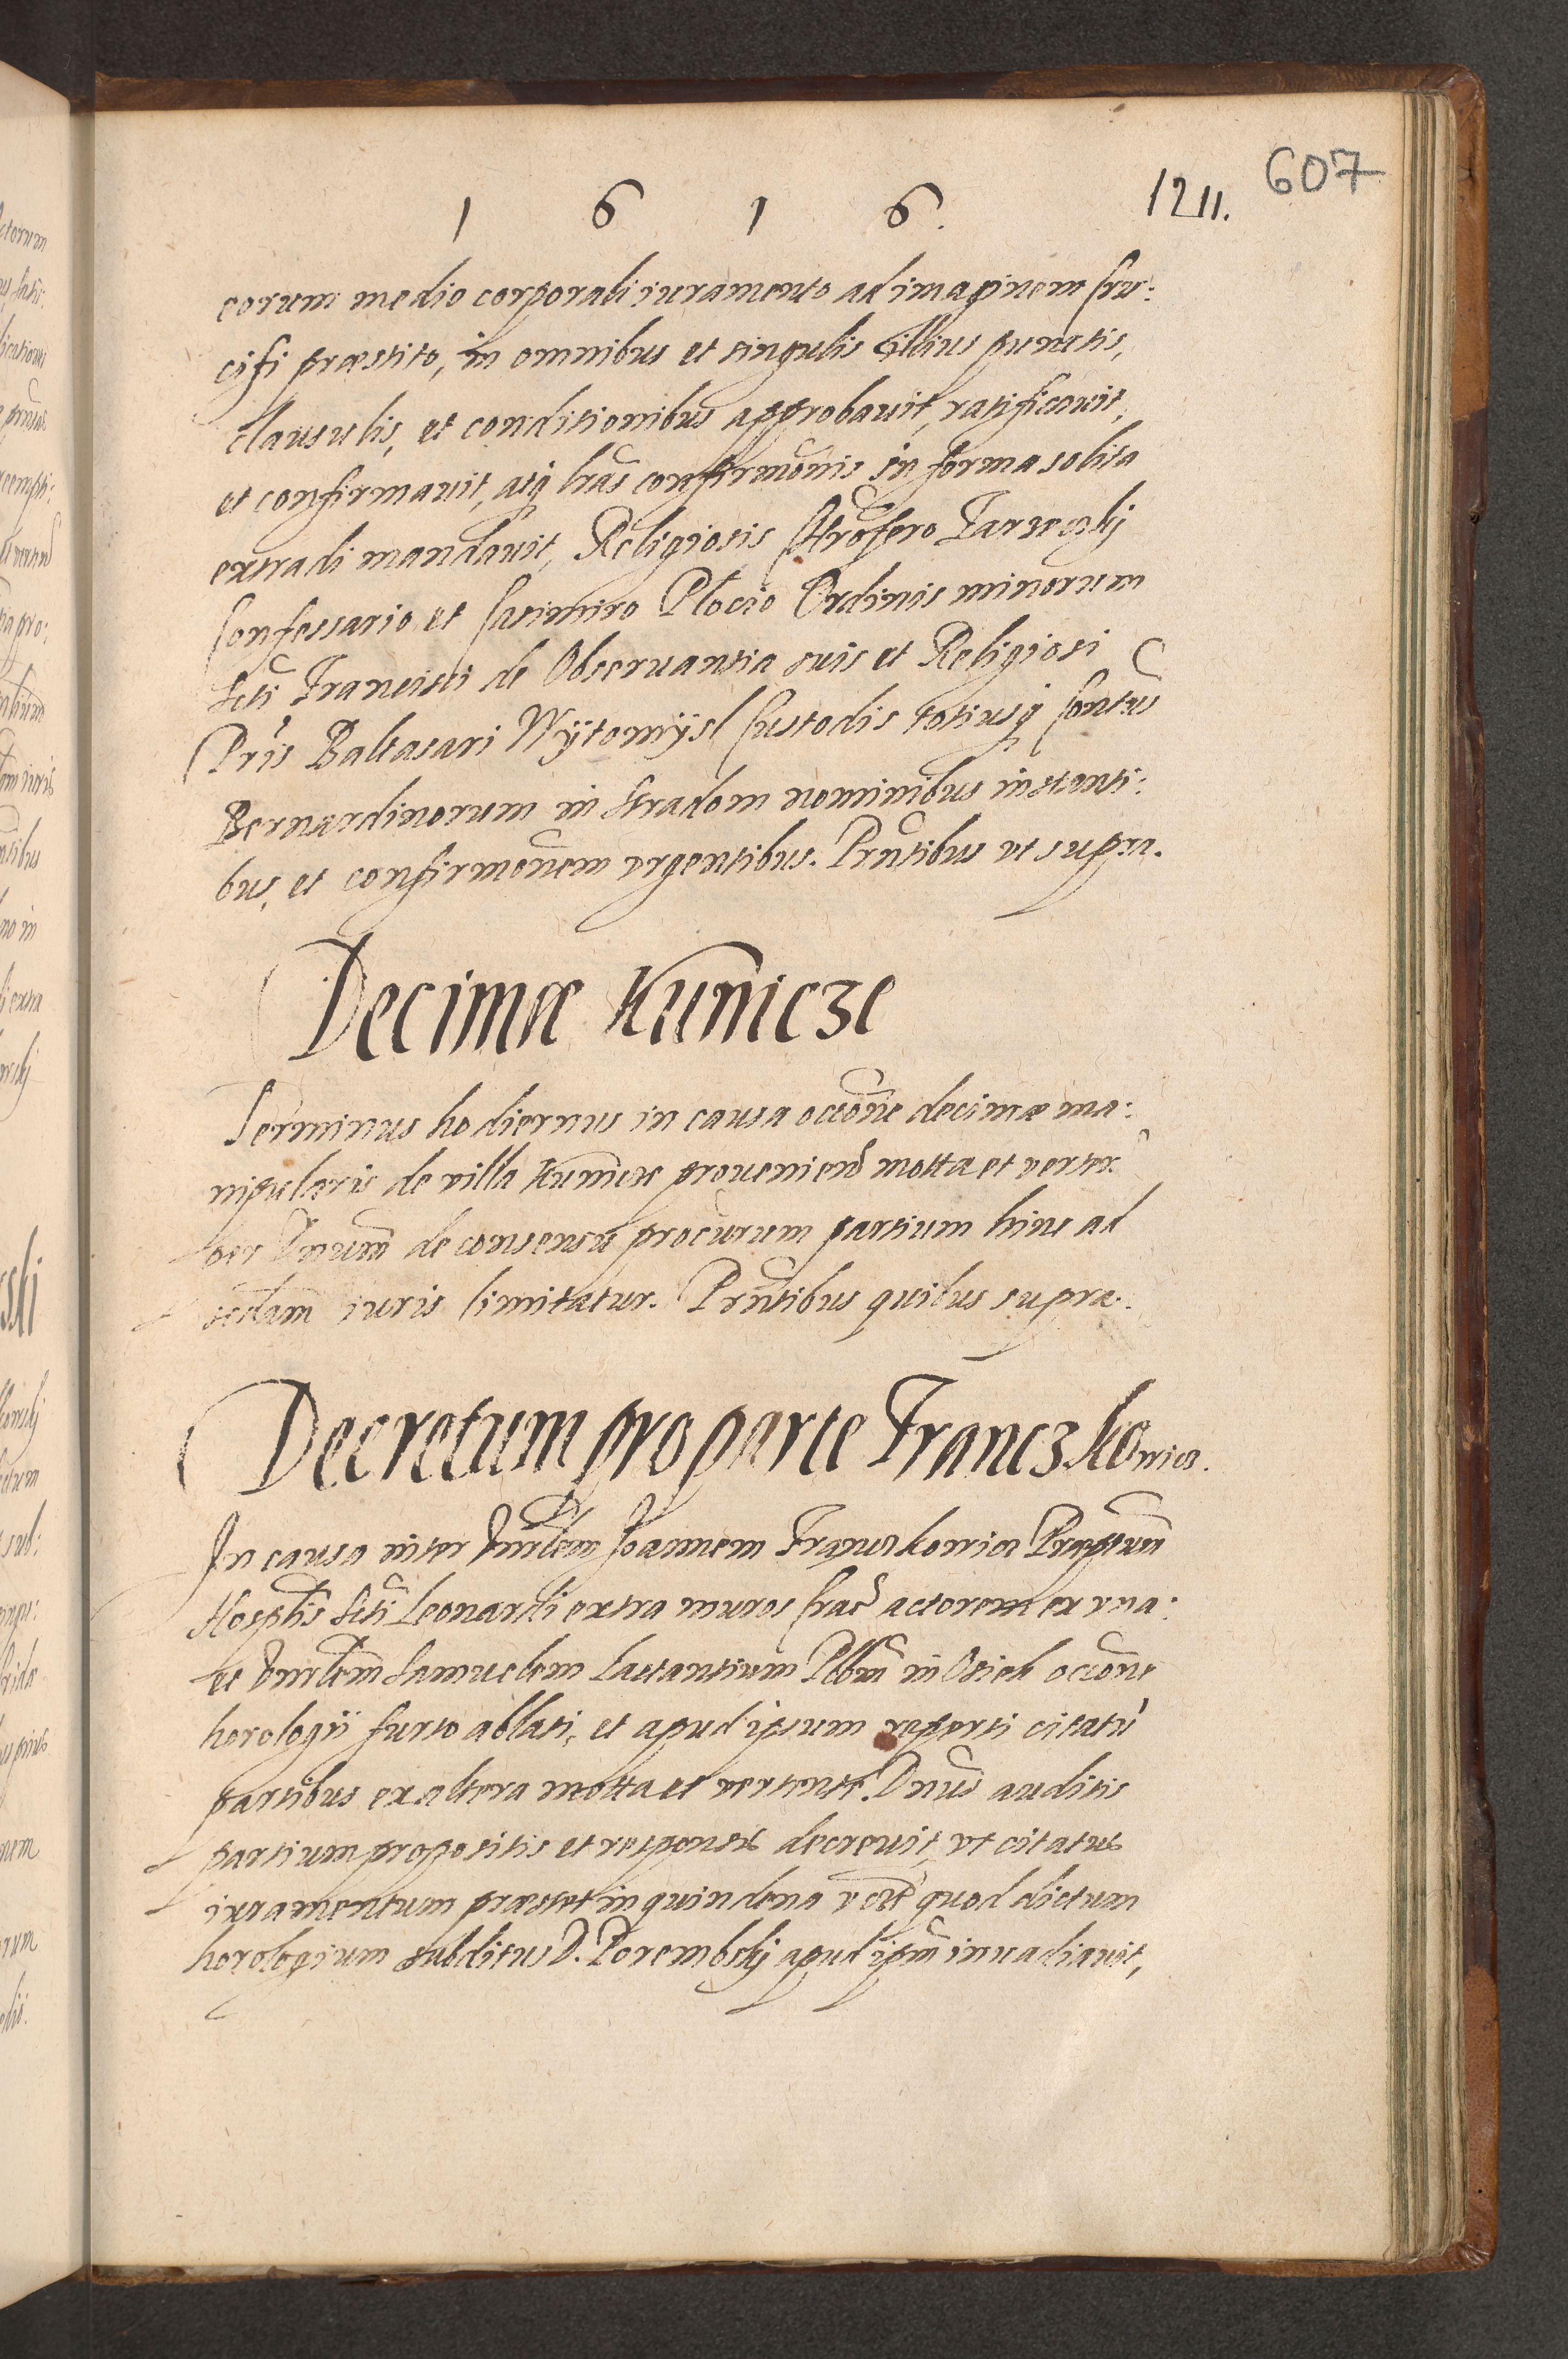 607
1 6 1 6. 1211.
eorum medio corporali iuramento ad imaginem Cru:
cifi præstito, in omnibus et singulis illius punctis,
clausulis, et conditionibus approbauit, ratificauit,
et confirmauit, atq lrãs confirmõnis in forma solita
extradi mandauit, Religiosis
Confessario et Casimiro Plocio Ordinis minorum
Scti Francisci de Obseruantia suis et Religiosi
Pris Baltasari Wytomysl Custodis totiusq Conuẽs
Bernardinorum in Stradom nominibus instanti:
bus, et confirmõnem vrgentibus. Prñtibus vt supra.
Decimæ Kunicze
Terminus hodiernus in causa occõne decimæ ma:
nipularis de villa Kunicze prouenieñ motta et verteñ
per Dnum de consensu procurum partium hinc ad
scdam iuris limitatur. Prñtibus quibus supra.
Decretum pro parte Franczkowica.
In causa inter Joannem Franczkowica Præptum
Hosptlis Scti Leonardi extra muros Crac actorem ex vna:
et Samuelem Lactantium Plbm in Osiek occõne
horologii furto ablati, et apud ipsum reperti citatũ
partibus ex altera motta et vertente. Dnus auditis
partium propositis et responsis decreuit, vt citatus
iuramentum præstet in quindena quod dictum
horologium subditus D. Porembskj apud ipm inuadiauit,